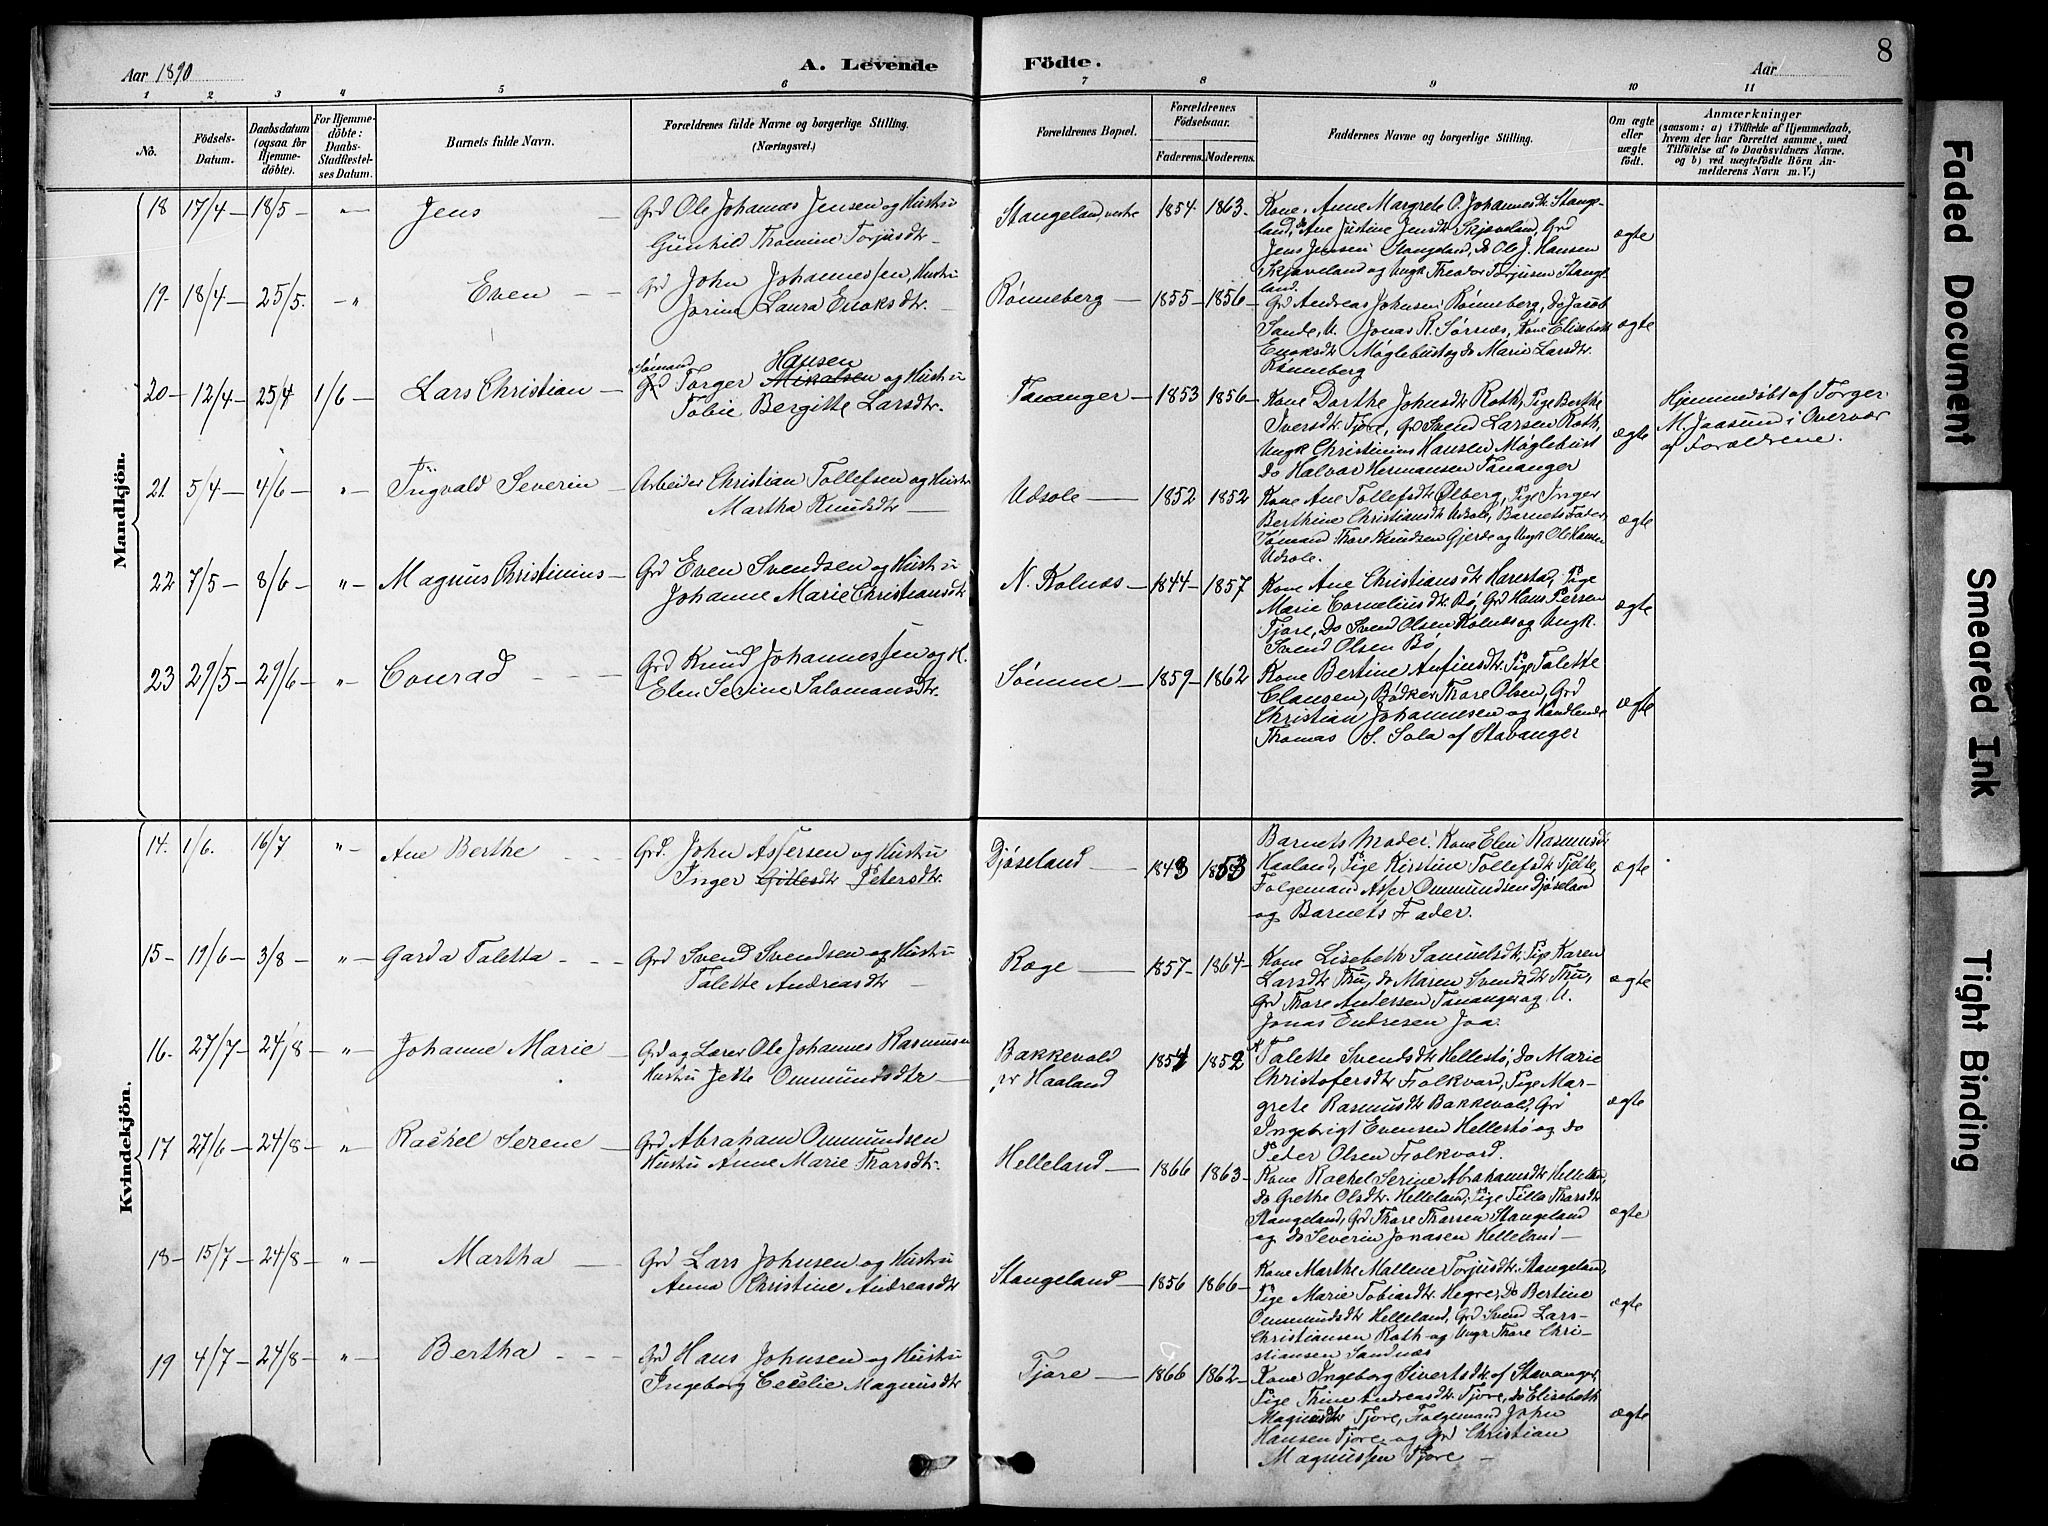 8
Aar 1890
A. Levende Födte.
Aar
1 2 3 4 5 6 7 8 9 10 11
No.
Födsels-
Datum.
Daabsdatum
(ogsaa for
Hjemme-
döbte).
For Hjemme-
döbte:
Daabs-
Stadfæstel-
ses Datum.
Barnets fulde Navn.
Forældrenes fulde Navne og borgerlige Stilling.
(Næringsvei.)
Forældrenes Bopæl.
Forældrenes
Födselsaar.
Faderens. Moderens.
Faddernes Navne og borgerlige Stilling.
Om ægte
eller
uægte
födt.
Anmærkninger
(saasom: a) i Tilfælde af Hjemmedaab,
hvem der har forrettet samme, med
Tilföielse af to Daabsvidners Navne,
og b) ved uægtefödte Börn An-
melderens Navn m. V.)
Mandkjön.
18 17/4 - 18/5 - " - Jens - Grd Ole Johannes Jensen og Hustru
Gunhild Thomine Torjusdtr -
Stangeland vestre 1854 - 1863 - Kone, Anne Margrete O. Johannesdtr Stange-
land, do Ane Justine Jensdtr Skjæveland, Grd
Jens Jensen Stangeland, do Ole J. Hansen
Skjæveland og Ungk Theodor Torjusen Stange-
land.
ægte
19 - 18/4 - 25/5. - " Even - - Grd John Johannessen, Hustru
Jorine Laura Enoksdtr. -
Rønneberg - 1855 - 1856 - Grd Andreas Johnsen Rønneberg, do Jacob
Sande, U. Jonas R. Sørnes, Kone Elisabeth
Enoksdtr Møglebust og do Marie Larsdtr.
Rønneberg
ægte
20 - 12/4 - 25/4 1/6 - Lars Christian - Sømand Grd Torger Hansen Mikalsen og Hustru
Tobie Bergitte Larsdtr.
Tananger - 1853 1856 - Kone Dorthe Johnsdtr Roth, Pige Berthe
Iversdtr Tjore, Grd Svend Larsen Roth,
Ungk Christinius Hansen Møglebust
do Halvar Hermansen Tananger
ægte
Hjemmedøbt af Torger
M. Jaasund i Overvær
af Forældrene.
21. 5/4 - 4/6 - " - Ingvald Severin - Arbeider Christian Tollefsen og Hustru
Martha Knudsdtr -
Udsole - 1852 1852 Kone Ane Tollefsdtr Ølberg, Pige Inger
Berthine Christiansdtr Udsole, Barnets Fader,
Sømand Thore Knudsen Gjerde og Ungk Ole Hansen
Udsole.
ægte
22 7/5 - 8/6 " - Magnus Christinius - Grd Even Svendsen og Hustru
Johanne Marie Christiansdtr
N. Kolnes - 1844 - 1857 Kone Ane Christiansdtr Harestad, Pige
Marie Corneliusdtr. Bø, Grd Hans Persen
Tjore, Do Svend Olsen Kolnes og Ungk.
Svend Olsen Bø,
ægte
23 29/5 - 29/6 - " Conrad - - - Grd Knud Johannessen og H.
Elen Serine Salomonsdtr.
Sømme - 1859 - 1862 Kone Bertine Anfinsdtr. Pige Talette
Clausen, Bødker Thore Olsen, Grd
Christian Johannesen og Handlende
Thomas S. Sola af Stavanger
ægte
Kvindekjön.
14. 1/6. 16/7 " - Ane Berthe - - Grd. John Assersen og Hustru
Inger Gillesdtr Petersdtr.
Djøseland - 1843 1853 Barnets Moder. Kone Elen Rasmusdtr
Haaland, Pige Kirstine Tollefsdtr Tjelte,
Følgemand Asser Ommundsen Djøseland
og Barnets Fader.
ægte
15 - 19/6 - 3/8 - " - Garda Taletta - - - Grd Svend Svendsen og Hustru
Talette Andreasdtr -
Ræge - 1857 - 1864 - Kone Lisebeth Samuelsdtr, Pige Karen
Larsdtr Thu, do Maren Svendsdtr Thu,
Grd Thore Andersen Tananger og U.
Jonas Endresen Joa.
ægte
16 - 27/7 - 24/8 - " - Johanne Marie - Grd og Lærer Ole Johannes Rasmusen
Hustru Jette Ommundsdtr -
Bakkevold
pr Haaland
1854 1852 Talette Svendsdtr Hellestø, do Marie
Christofersdtr Folkvord, Pige Mar-
grete Rasmusdtr Bakkevold, Grd
Ingebrigt Evensen Hellestø og do
Peder Olsen Folkvord.
ægte
17 27/6 - 24/8 - " Rachel Serene - Grd Abraham Ommundsen
Hustru Anne Marie Thorsdtr.
Helleland - 1866 1863 - Kone Rachel Serine Abrahamsdtr Helleland,
do Grethe Olsdtr. Helleland, Pige Tilla Thorsdtr
Stangeland, Grd Thore Thorsen Stangeland
og do Severin Jonasen Helleland -
ægte
18 - 15/7 - 24/8 - " Martha - Grd Lars Johnsen og Hustru
Anna Christine Andreasdtr
Stangeland - 1856 1866 - Kone Marthe Mallene Torjusdtr Stangeland,
Pige Marie Tobiasdtr. Hegre, Do Bertine
Ommundsdtr Helleland, Grd Svend Lars-
Christiansen Roth og Ungk Thore Chri-
stiansen Sandnæs
ægte
19 4/7 - 24/8 - " - Bertha - - - Grd Hans Johnsen og Hustru
Ingeborg Cecelie Magnusdtr
Tjore - 1866 1862 - Kone Ingeborg Sivertsdtr af Stavanger,
Pige Thine Andreasdtr. Tjore, do Elisabeth
Magnusdtr Tjore, Følgemand John
Hansen Tjore og Grd Christian
Magnussen Tjore -
ægte
Faded Document
Smeared Ink
Tight Binding